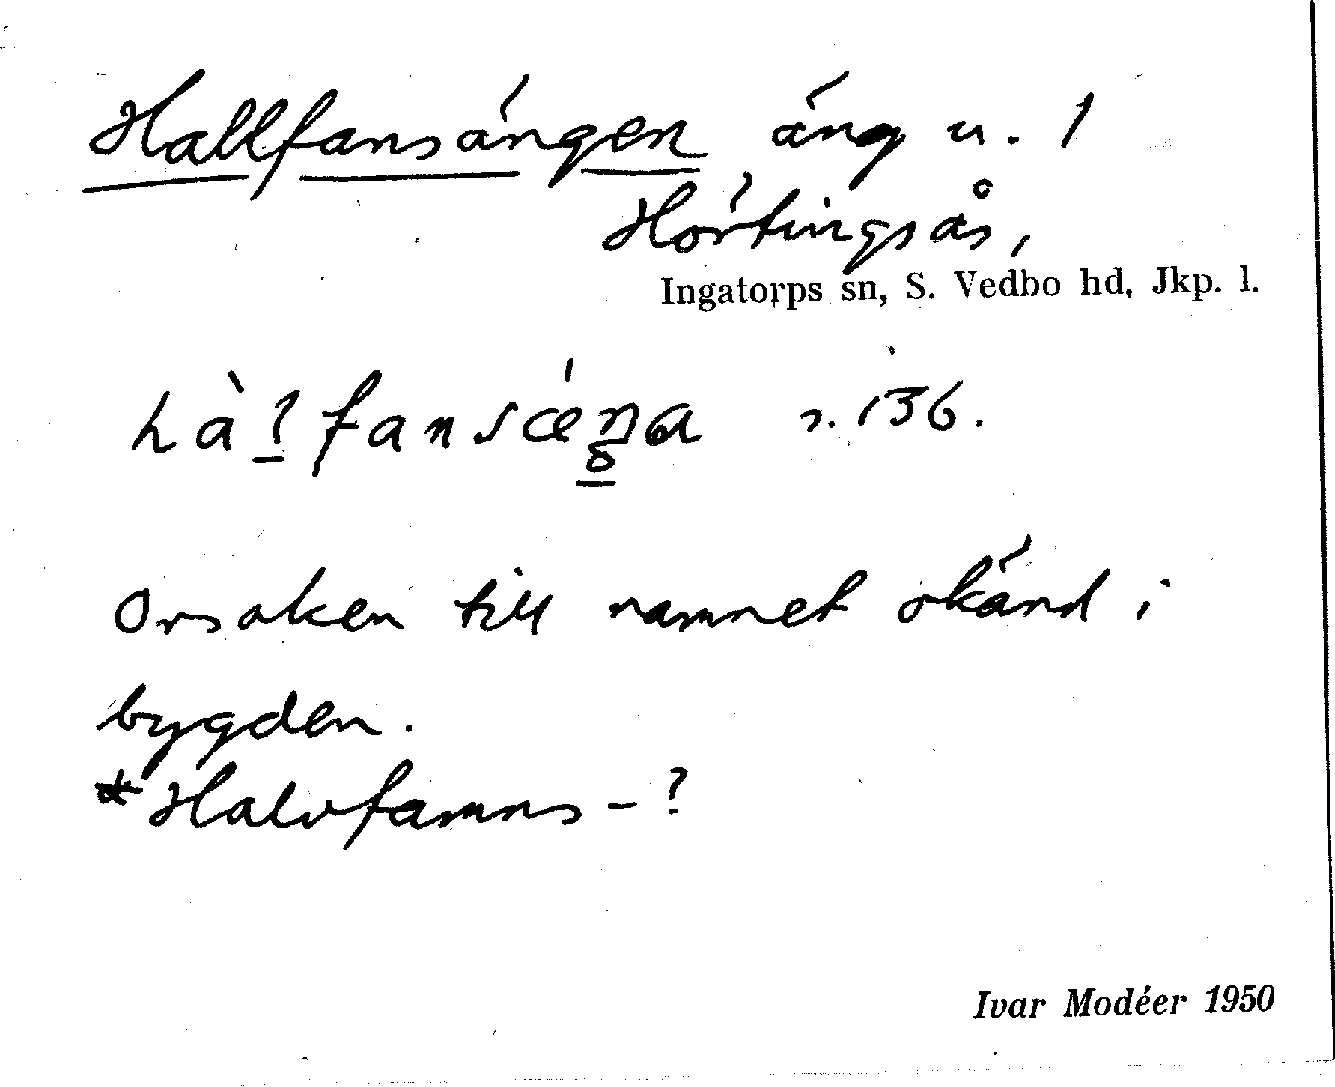 Hallfansängen äng u. 1
Hörtingsås,
Ingatorps sn, S. Vedbo hd, Jkp. l.
hàlfansǽŋa 136.
Orsaken till namnet okänd i
bygden.
*Halvfamns-?
Ivar Modéer 1950